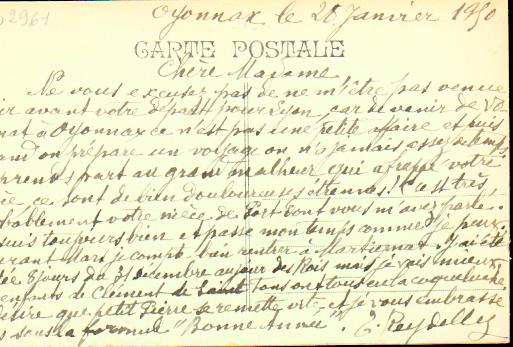 2961
Oyonnax le 28 Janvier 1950
CARTE POSTALE
Chère Madame,
Ne vous excusez pas de ne m'être pas venue
ir avant votre départ pour Lyon, car de venir de
nat à Oyonnax ce n'est pas une petite affaire et puis
and on prépare un voyage on n'a jamais assez de temps
prends part au grand malheur qui a frappé votre
ce sont de bien douloureuses étrennes! C'est très
bablement votre nièce de vous m'avez parlé.
suis toujours bien et passe mon temps comme je peux.
urant Mars je compte bien rentrer à Martignat. J'ai été
tée 8 jours du 31 décembre au jour des Rois mais je vais mieux
enfants de Clément de Saint ont tous eu la coqueluche
désire que petit Pierre se remette vite et je vous embrasse
s sous la formule "Bonne Année". Reydellet